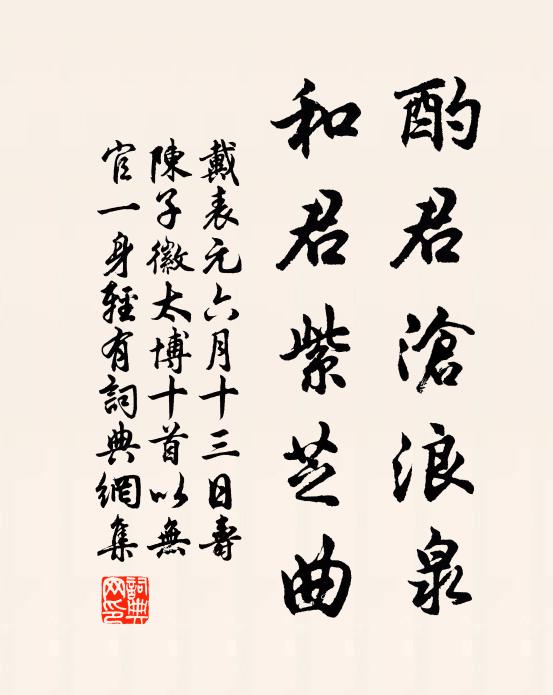 酌君滄浪泉
和君紫芝曲
戴表元六月十三日壽
陳子徽太博十首以無
官一身輕有詞典網集
詞典
网印